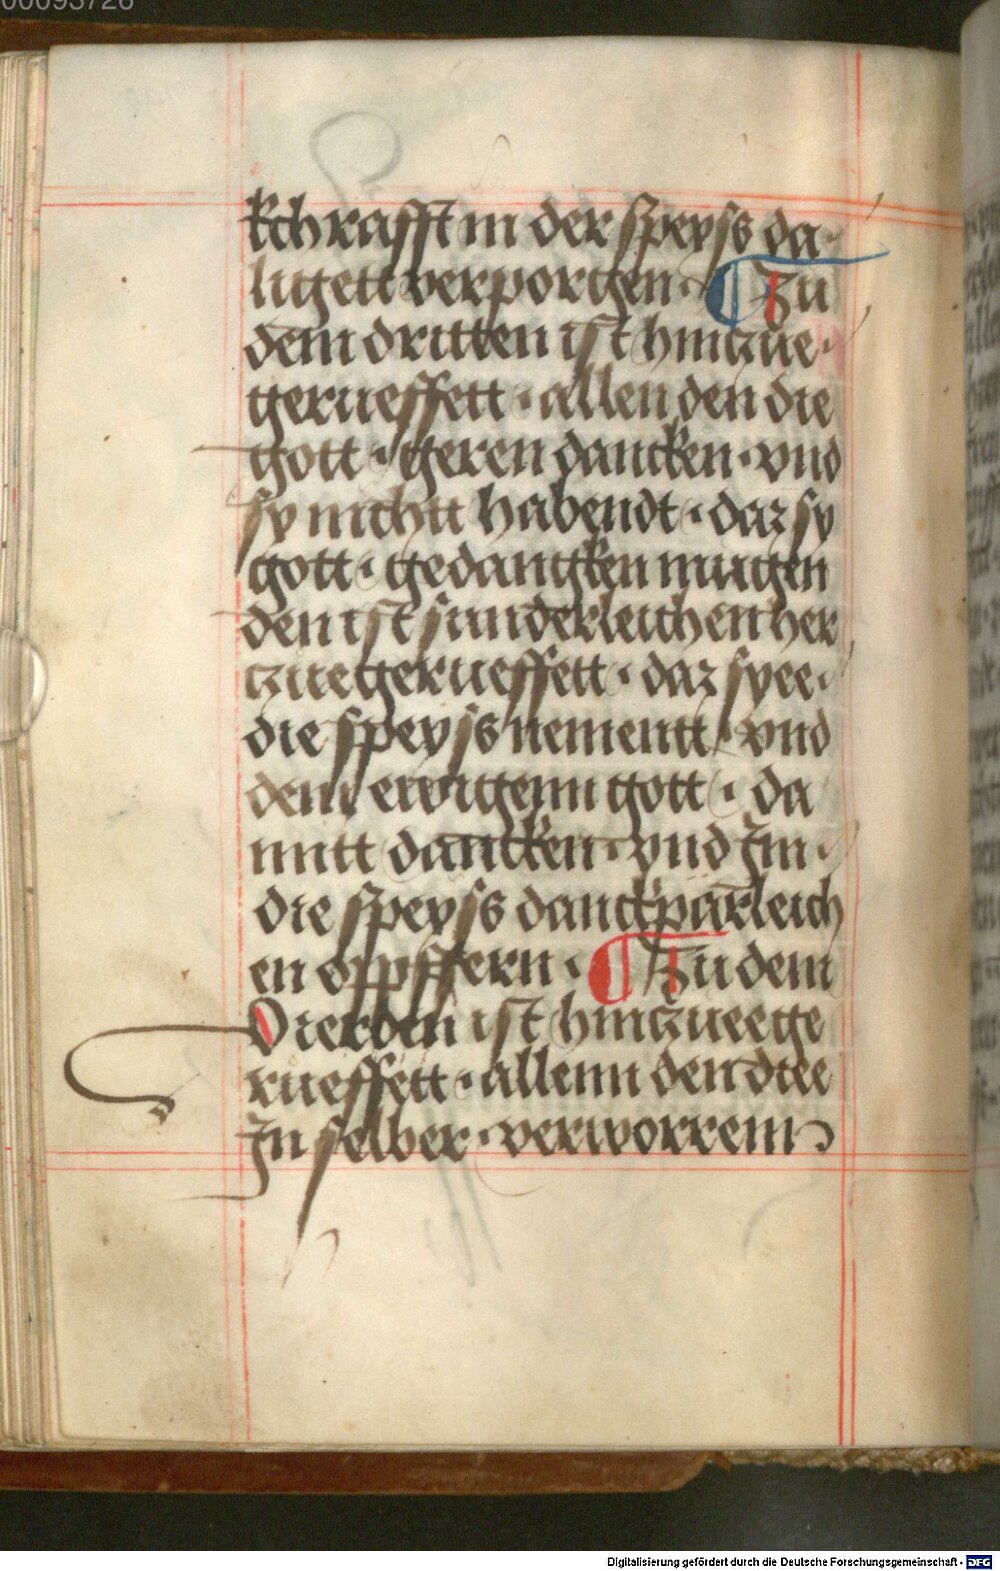 00093726
kchrafft in der speyss da·
ligett verporgen · ¶ Zu
dem dritten ist hinzue·
gerueffett · allen den die
gott · geren dancken · vnd
sy nichtt habendt · daz sy
gott · gedangken mugen
den ist sunderleichen her
zuegerueffett · daz syee·
die speyss nementt · vnd
dem ewigenn gott · da
mitt dancken · vnd Im ·
die speyss danckpärleich
en opffern · ¶ Zu dem
Vierden ist hinzueege
rueffett · allenn den diee
In selber · verworrenn
Digitalisierung gefördert durch die Deutsche Forschungsgemeinschaft - DFG